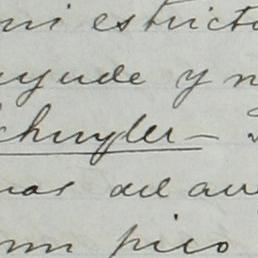 mi estricto
ayude y n
chuyler –
nas del au
un pico